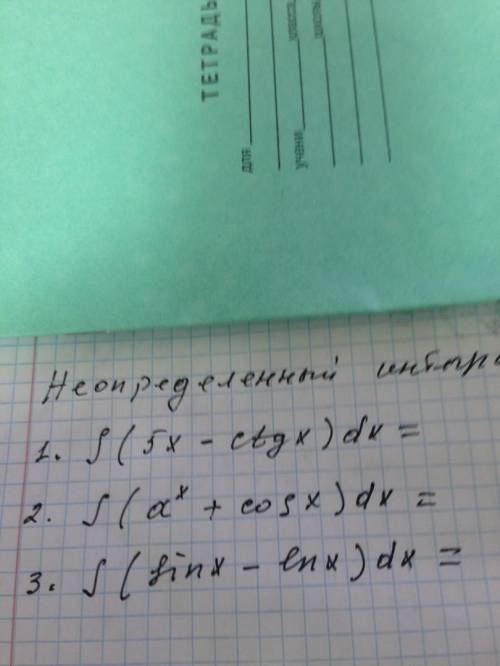 ТЕТРАДЬ
для
учени
класса
школы
Неопределенный
1. ∫(5x - ctgx)dx =
2. ∫(a^x + cosx)dx =
3. ∫(sinx - lnx)dx =